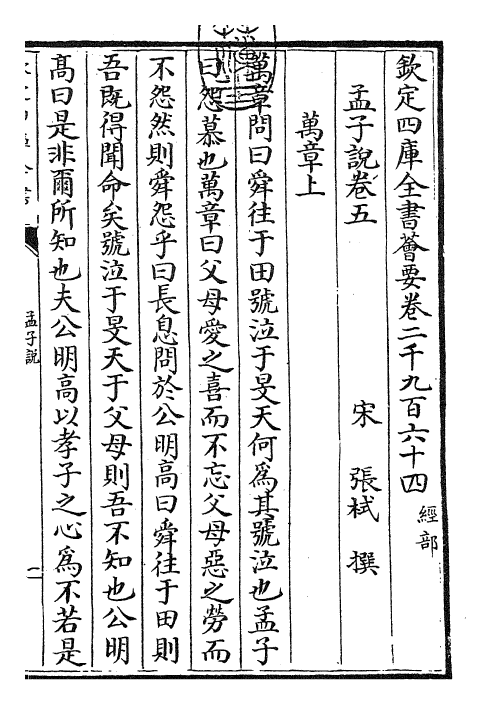 欽定四庫全書薈要卷二千九百六十四 經部
孟子說卷五 宋 張栻 撰
萬章上
萬章問曰舜往于田號泣于旻天何為其號泣也孟子
曰怨慕也萬章曰父母愛之喜而不忘父母惡之勞而
不怨然則舜怨乎曰長息問於公明高曰舜往于田則
吾既得聞命矣號泣于旻天于父母則吾不知也公明
高曰是非爾所知也夫公明高以孝子之心為不若是
孟子說